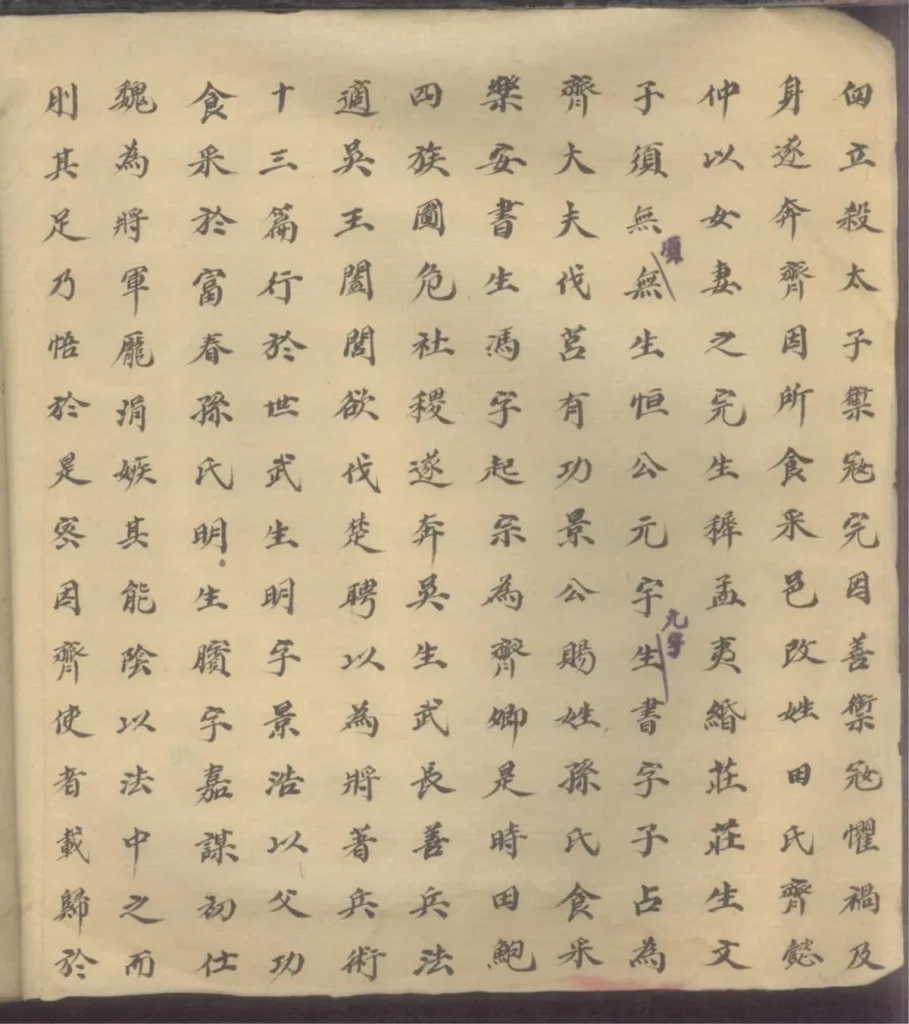 立殺太子禦寇完因善禦寇懼禍及
身遂奔齊因所食采邑改姓田氏齊懿
仲以女妻之完生穉孟夷緡莊莊生文
子須無無生恒公元字生書字子占為
須
元字
齊大夫伐莒有功景公賜姓孫氏食采
樂安書生馮字起宗為齊卿是時田鮑
四族圖危社稷遂奔吳生武長善兵法
適吳王闔閭欲伐楚聘以為將著兵術
十三篇行於世武生明字景浩以父功
食采於富春孫氏明生臏字嘉謀初仕
魏為將軍龐涓嫉其能陰以法中之而
刖其足乃悟於是密因齊使者載歸於